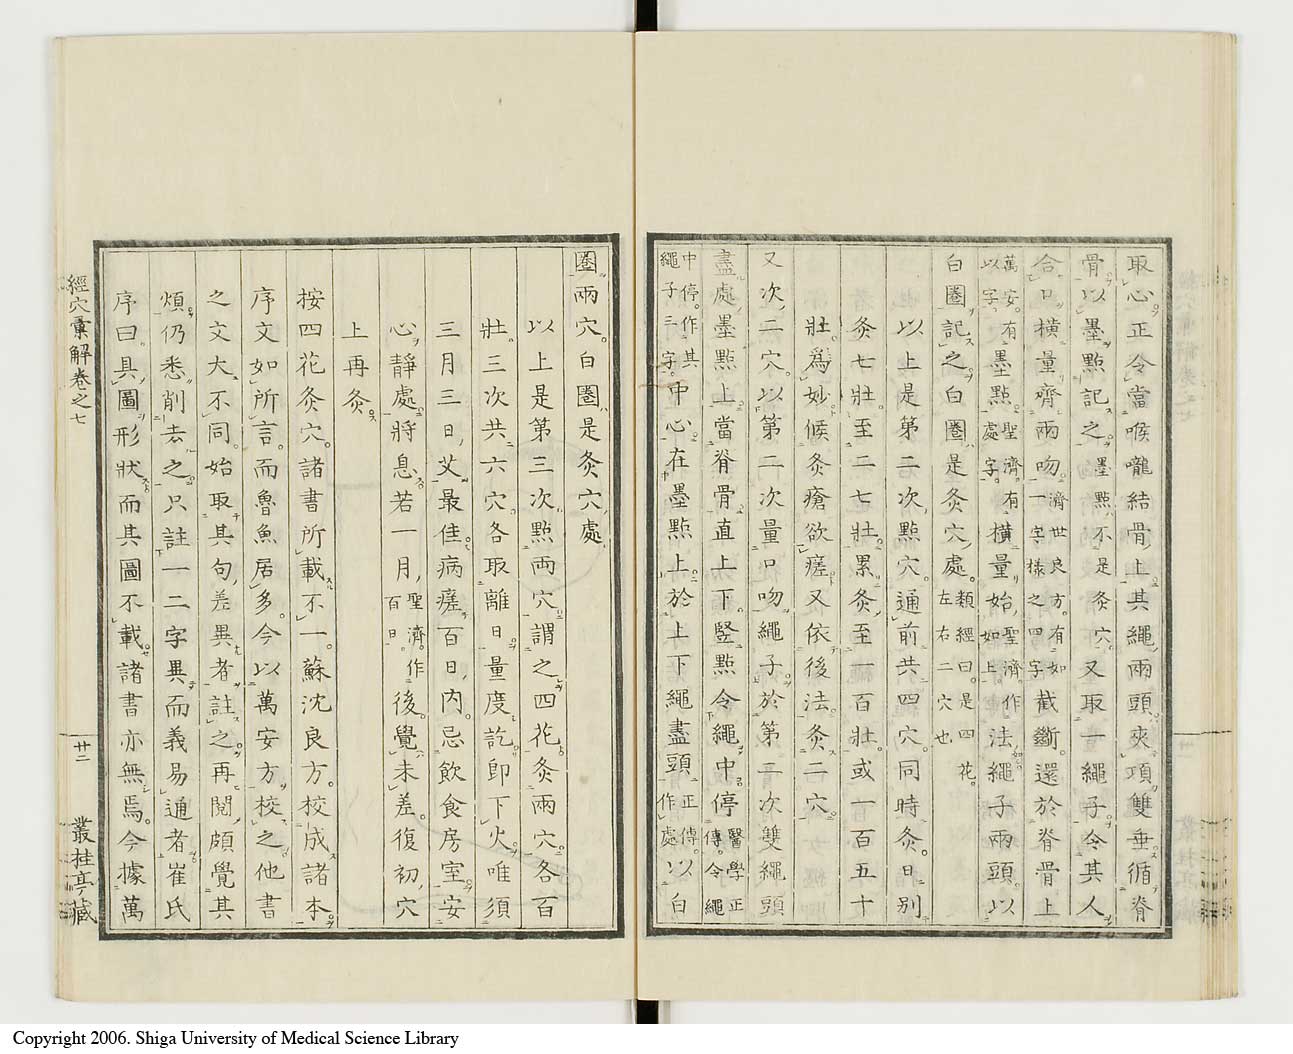 取心正令當喉嚨結骨上其繩兩頭夾項雙垂循脊
骨以墨點記之墨點不是灸穴又取一繩子令其人
合口橫量齊兩吻濟世良方有如一字樣之四字截斷還於脊骨上
萬安有以字墨點聖濟有處字橫量始聖濟作如上法繩子兩頭以
白圈記之白圈是灸穴處類經曰是四花左右二穴也
以上是第二次點穴通前共四穴同時灸日別
灸七壯至二七壯累灸至一百壯或一百五十
壯爲妙候灸瘡欲瘥又依後法灸二穴
又次二穴以第二次量口吻繩子於第二次雙繩頭
盡處墨點上當脊骨直上下竪點令繩中停醫學正傳令繩
中停作其繩子三字中心在墨點上於上下繩盡頭正傳作處以白
圈兩穴白圈是灸穴處
以上是第三次點兩穴謂之四花灸兩穴各百
壯三次共六穴各取離日量度訖卽下火唯須
三月三日艾最佳病瘥百日內忌飲食房室安
心靜處將息若一月聖濟作百日後覺未差復初穴
上再灸
按四花灸穴諸書所載不一蘇沈良方校成諸本
序文如所言而魯魚居多今以萬安方校之他書
之文大不同始取其句差異者註之再閱頗覺其
煩仍悉削去之只註一二字異而義易通者崔氏
序曰具圖形狀而其圖不載諸書亦無焉今據萬
經穴彙解卷之七
廿二
叢桂亭藏
Copyright 2006. Shiga University of Medical Science Library